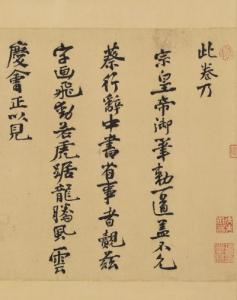 此卷乃
宗皇帝御筆勅一道蓋不允
蔡行辭中書省事者觀茲
字畫飛動若虎踞龍騰風雲
慶會正以見